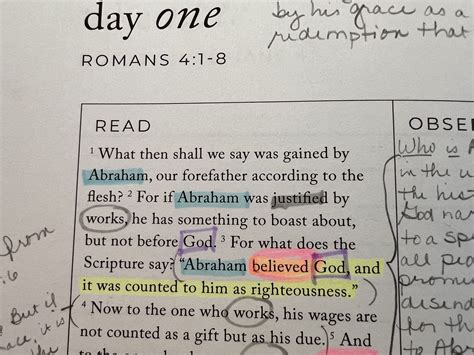 day one
by his grace as a
redemption that
ROMANS 4:1-8
READ
OBSE
1 What then shall we say was gained by
Abraham, our forefather according to the
flesh? 2 For if Abraham was justified by
works, he has something to boast about,
but not before God. 3 For what does the
Scripture say? "Abraham believed God, and
it was counted to him as righteousness."
4 Now to the one who works, his wages are
not counted as a gift but as his due. 5 And
from
:6
But if
Who is
in the
the his
God na
to a sp
all peo
promi
for
to Abr